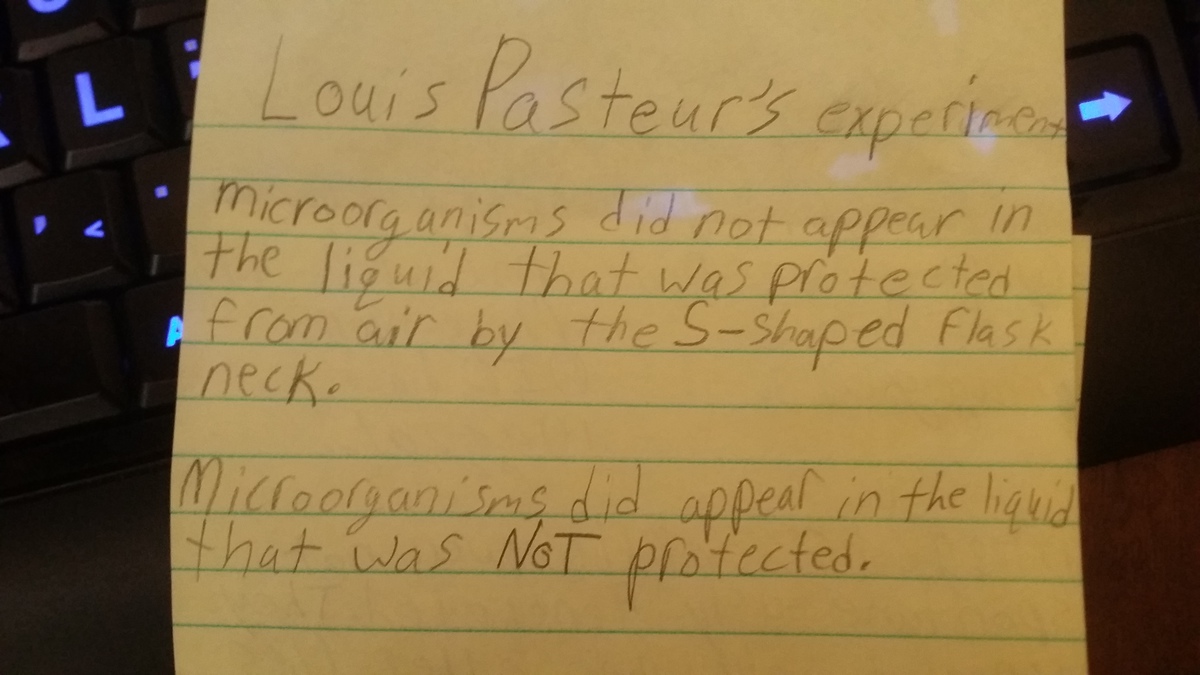 L
;
:
, <
.
A
Louis Pasteur's experiment
microorganisms did not appear in
the liquid that was protected
from air by the S-shaped flask
neck.
Microorganisms did appear in the liquid
that was NOT protected.